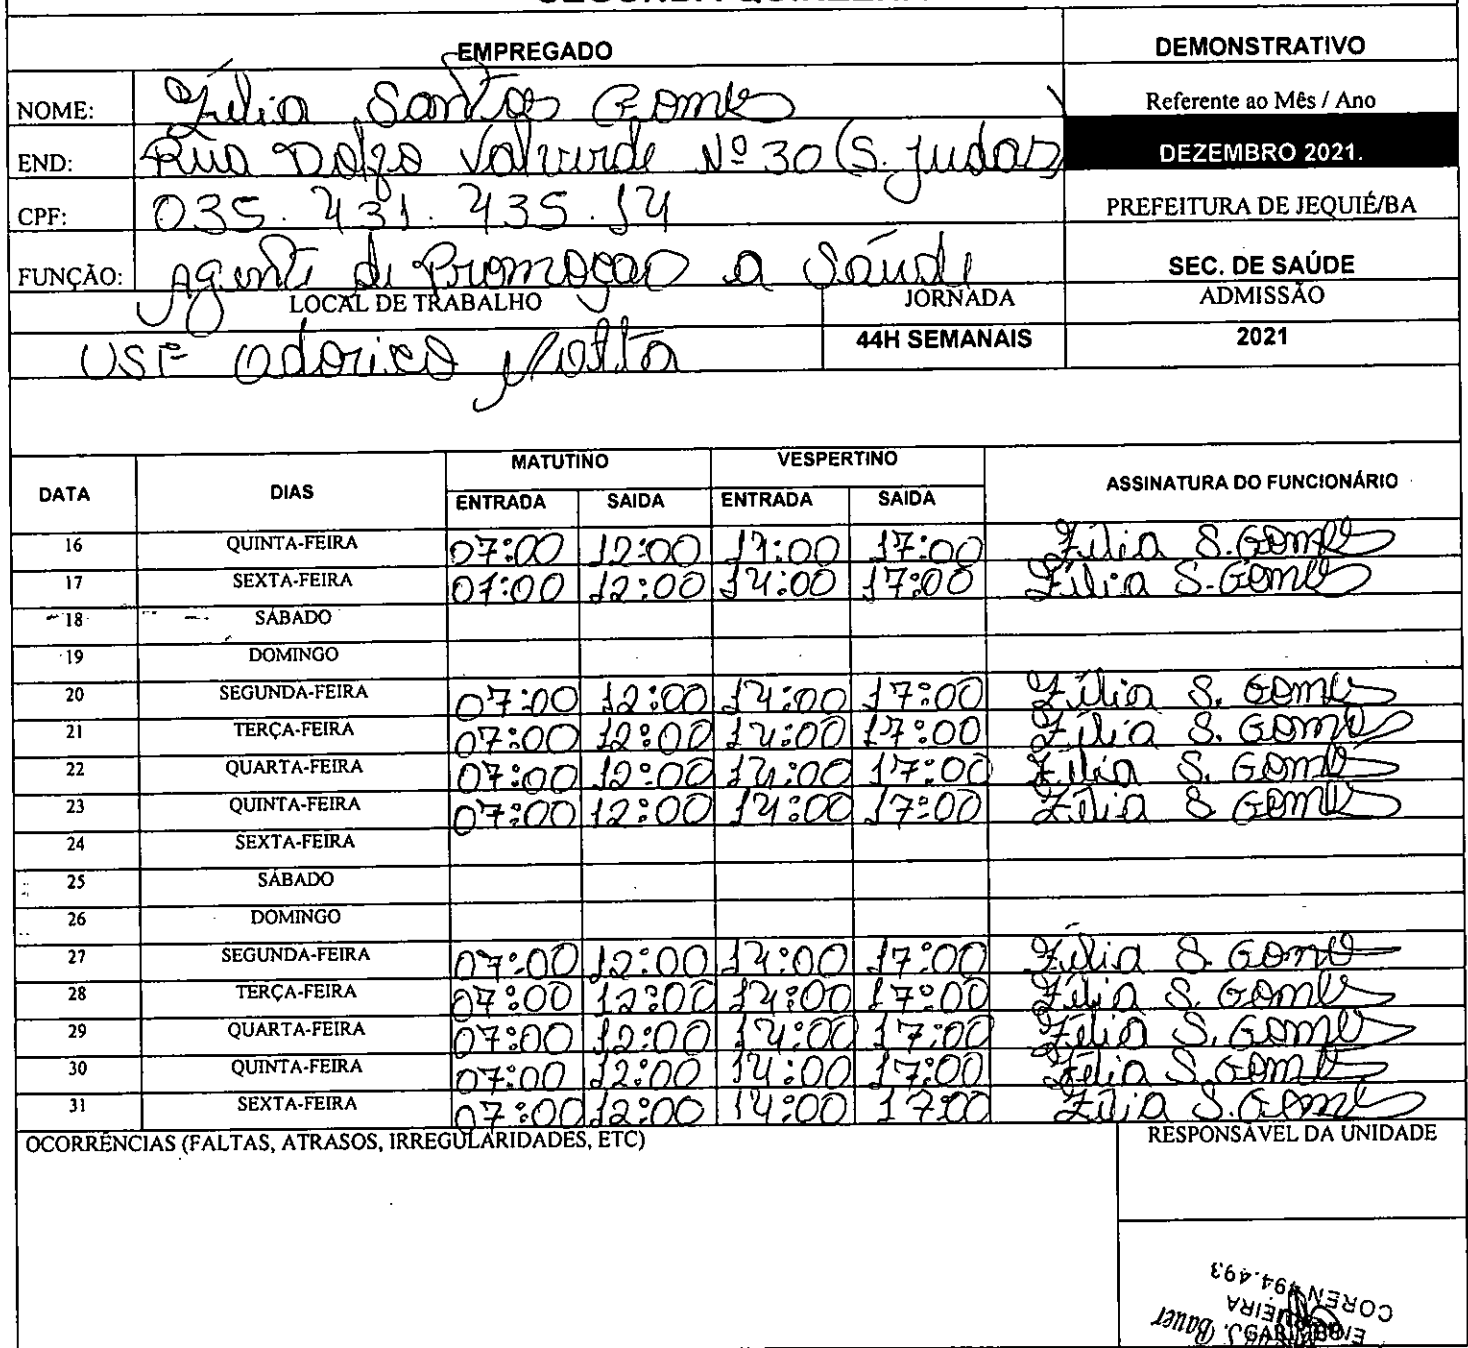 EMPREGADO DEMONSTRATIVO
NOME: Zilia Santos Gomes Referente ao Mês / Ano
END: Rua Valverde Nº 30 (S. Judas) DEZEMBRO 2021.
CPF: 035.431.435.14 PREFEITURA DE JEQUIÉ/BA
FUNÇÃO: Agente de Promoção a Saúde SEC. DE SAÚDE
LOCAL DE TRABALHO JORNADA ADMISSÃO
USF Odorico Motta 44H SEMANAIS 2021
DATA DIAS MATUTINO VESPERTINO ASSINATURA DO FUNCIONÁRIO
ENTRADA SAIDA ENTRADA SAIDA
16 QUINTA-FEIRA 07:00 12:00 14:00 17:00 Zilia S. Gomes
17 SEXTA-FEIRA 07:00 12:00 14:00 17:00 Zilia S. Gomes
18 SÁBADO
19 DOMINGO
20 SEGUNDA-FEIRA 07:00 12:00 14:00 17:00 Zilia S. Gomes
21 TERÇA-FEIRA 07:00 12:00 14:00 17:00 Zilia S. Gomes
22 QUARTA-FEIRA 07:00 12:00 14:00 17:00 Zilia S. Gomes
23 QUINTA-FEIRA 07:00 12:00 14:00 17:00 Zilia S. Gomes
24 SEXTA-FEIRA
25 SÁBADO
26 DOMINGO
27 SEGUNDA-FEIRA 07:00 12:00 14:00 17:00 Zilia S. Gomes
28 TERÇA-FEIRA 07:00 12:00 14:00 17:00 Zilia S. Gomes
29 QUARTA-FEIRA 07:00 12:00 14:00 17:00 Zilia S. Gomes
30 QUINTA-FEIRA 07:00 12:00 14:00 17:00 Zilia S. Gomes
31 SEXTA-FEIRA 07:00 12:00 14:00 17:00 Zilia S. Gomes
OCORRÊNCIAS (FALTAS, ATRASOS, IRREGULARIDADES, ETC) RESPONSÁVEL DA UNIDADE
COREN 494.493